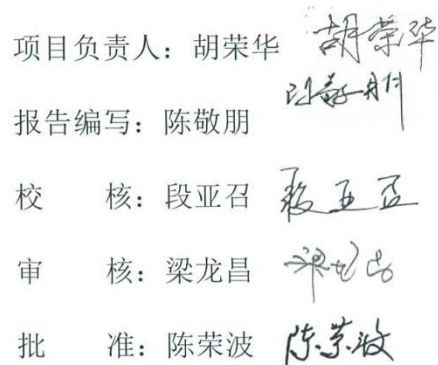 项目负责人：胡荣华 胡荣华
报告编写：陈敬朋
校 核：段亚召
审 核：梁龙昌
批 准：陈荣波 陈荣波